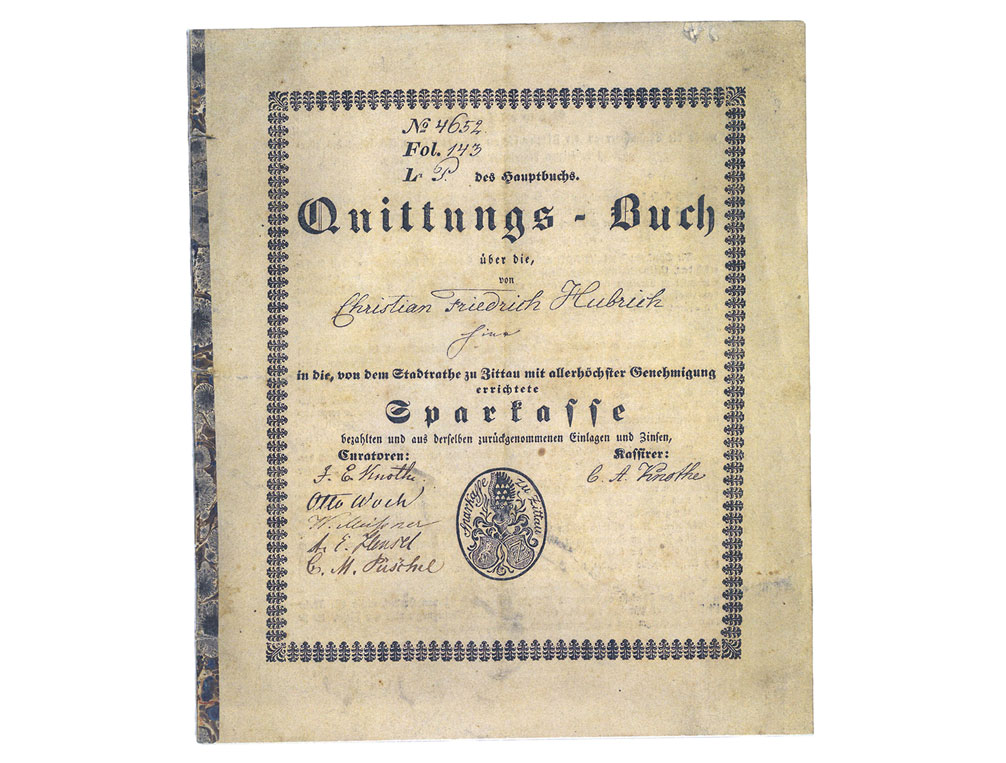 No 4652
Fol. 143
L. P. des Hauptbuchs.
Quittungs - Buch
über die,
von
Christian Friedrich Hubrich
hier
in die, von dem Stadtrathe zu Zittau mit allerhöchster Genehmigung
errichtete
Sparkasse
bezahlten und aus derselben zurückgenommenen Einlagen und Zinsen,
Curatoren:
Kassirer:
F. E. Knothe.
C. A. Knothe
Otto Woch
W. Meißner
A. E. Hensel
C. M. Püschel
Sparkasse zu Zittau